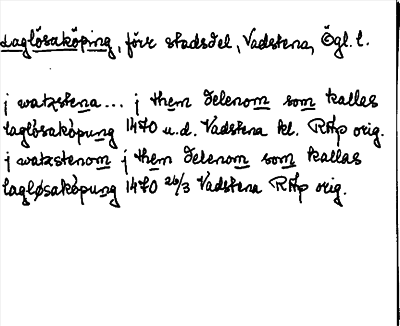 Laglösaköping, förr stadsdel, Vadstena, Ögl. l.
j watzstena... j them delenom som kallas
laglösaköpung 1470 u.d. Vadstena kl. RAp orig.
j watzstenom j them delenom som kallas
lagløsaköpung 1470 26/3 Vadstena RAp orig.